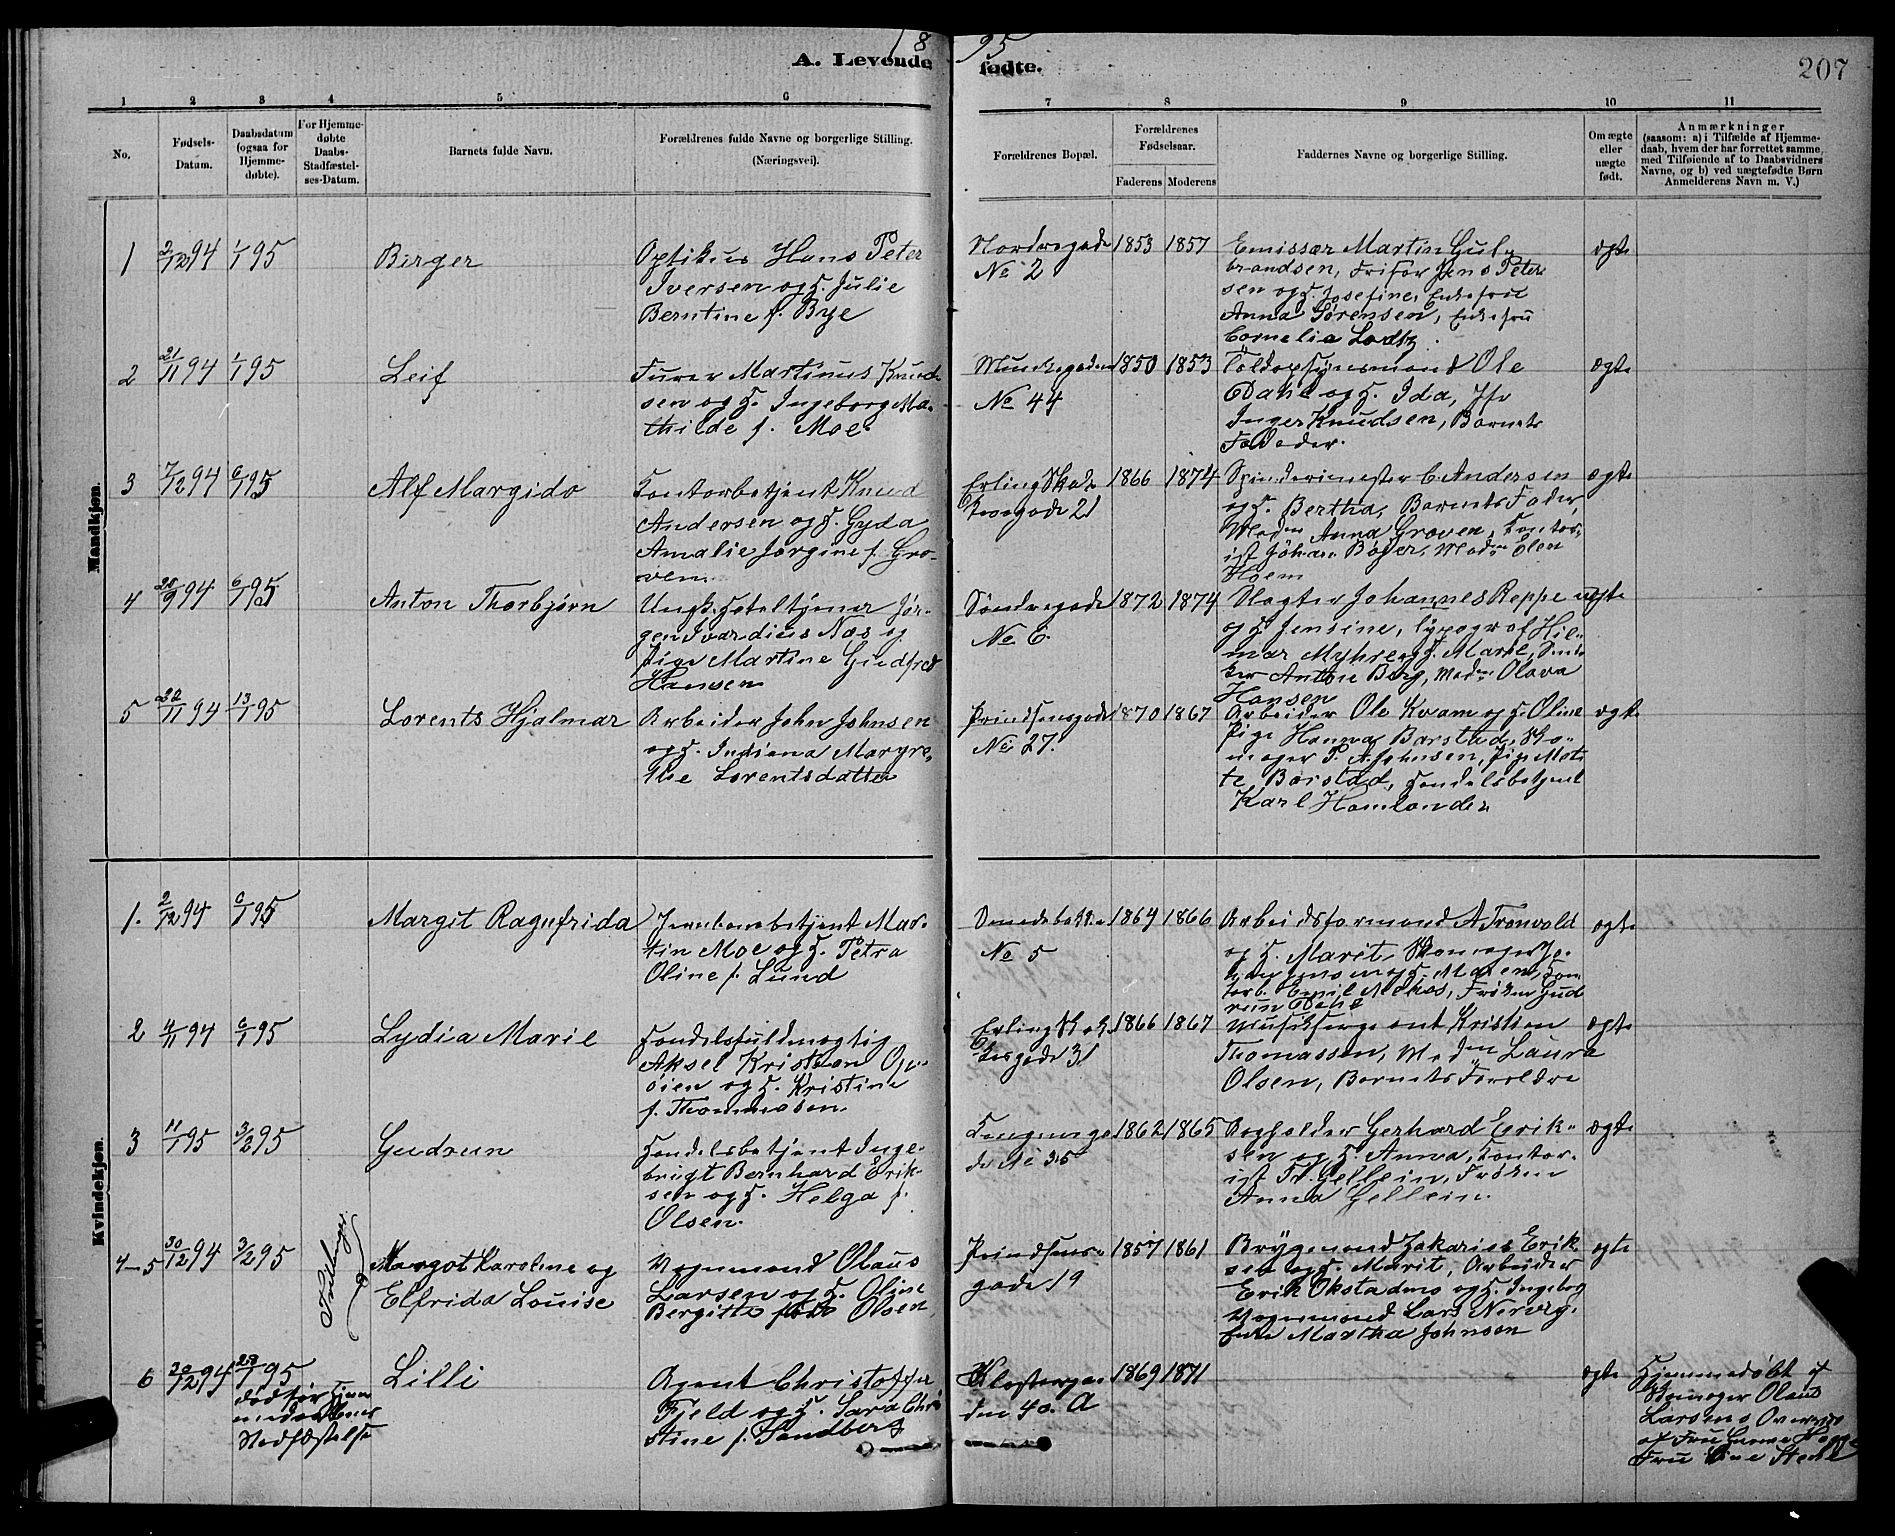 18 95
A. Levende fødte.
207
1 2 3 4 5 6 7 8 9 10 11
No.
Fødsels-
Datum.
Daabsdatum
(ogsaa for
Hjemme-
døbte).
For Hjemme-
døbte
Daabs-
Stadfæstel-
ses-Datum.
Barnets fulde Navn.
Forældrenes fulde Navne og borgerlige Stilling.
(Næringsvei).
Forældrenes Bopæl.
Forældrenes
Fødselsaar.
Faderens Moderens
Faddernes Navne og borgerlige Stilling.
Om ægte
eller
uægte
født.
Anmærkninger
(saasom: a) i Tilfælde af Hjemme-
daab, hvem der har forrettet samme,
med Tilføiende af to Daabsvidners
Navne, og b) ved uægtefødte Børn
Anmelderens Navn m. V.)
Mandkjøn.
1 2/12 94 1/1 95 Birger
Optikus Hans Peter
Iversen og H. Julie
Berntine f. Bye
Nordregade
No 2
1853 1857
Emissær Martin Gul-
brandsen, Frisør Jens Peter
sen og H. Josefine, Enkefru
Anna Sørensen, Enkefru
Cornelia
ægte
2 21/11 94 1/1 95 Leif
Furer Martinus Knud-
sen og H. Ingeborg Ma-
thilde f. Moe
Munkegaden
No 44
1850 1853
Toldopsynsmand Ole
Dahl og H. Ida, Jfr
Inger Knudsen, Barnets
Fader.
ægte
3 7/12 94 6/1 95 Alf Margido
Kontorbetjent Knud
Andersen og H. Gyda
Amalie Jørgine f. Gra-
ven
Erling Skak
kesgade 21
1866 1874
Spinderimester C Andersen
og H. Bertha, Barnets Fader,
Madm Anna Graven, Kontor-
ist Johan Bøyer, Madm Elen
Hoem
ægte
4 28/9 94 6/1 95 Anton Thorbjørn
Ungk. Hoteltjener Jør-
gen Ivardius Næs og
Pige Martine
Hansen
Søndregade
No 6
1872 1874
Slagter Johannes Reppe
og H Jensine, Typograf Hil-
mar Myhre og H. Marie,
Anton Berg, Madm Olava
Hansen
uægte
5 22/11 94 13/1 95 Lorents Hjalmar
Arbeider John Johnsen
og H. Indiana Margre-
the Lorentsdatter
Prindsensgade
No 27.
1870 1867
Arbeider Ole Kvam og H. Oline
Pige Hanna Barstad, Sko-
mager P. A. Johnsen, Pige Met-
te Barstad, Handelsbetjent
Karl Hamlander
ægte
Kvindekjøn.
1. 2/12 94 6/1 95 Margit Ragnfrida
Jernbanebetjent Mar-
tin Moe og H. Petra
Oline f. Lund
No 5
1864 1866
Arbeidsformand A Tronvold
og H. Marit, Skomager
og H. Maren, Kon-
torb. Emil, Frøken Gud
run Dahl
ægte
2 4/11 94 6/1 95 Lydia Marie
Handelsfuldmægtig
Aksel Kristian Op-
øien og H. Kristine
f. Thommasen.
Erling Skak
kesgade 31
1866 1867
Musiksergeant Kristian
Thomassen, Madm Laura
Olsen, Barnets Forældre
ægte
3 11/1 95 3/2 95 Gudrun
Handelsbetjent Inge-
brigt Bernhard Erik-
sen og H. Helga f.
Olsen.
Kongensga
de No 35
1862 1865
Bogholder Gerhard Erik-
sen og H. Anna, Kontor-
ist Fr. Gellein, Frøken
Anna Gellein.
ægte
4-5 30/12 94 3/2 95 Tvillinger Margot Karoline og
Elfrida Louise
Vognmand Olaus
Larsen og H. Oline
Bergitte født Olsen
Prindsens-
gade 19
1857 1861
Bryggemand Zakarias Erik-
sen og H. Marit, Arbeider
Erik Okstadmo og H. Ingeborg
Vognmand Lars
Martha Johnson
ægte
6 30/12 94 28/1 95
død før
Stadfæstelse
Lilli
Agent Christoffer
Fjeld og H. Sara Chri
stine f. Sandberg
Klosterga
den 40. A
1869 1871
ægte
Hjemmedøbt af
Skomager Olaus
Larsens Overvær
af Fru
Fru Line